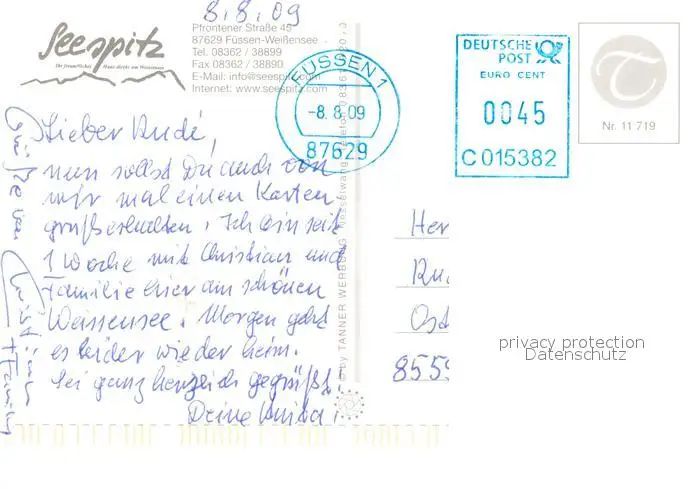 8.8.09
Seespitz
Ihr freundliches Haus direkt am Weissensee
Pfrontener Straße 45
87629 Füssen-Weißensee
Tel. 08362 / 38899
Fax 08362 / 38890
E-Mail: info@seespitz.com
Internet: www.seespitz.com
FÜSSEN 1
-8.8.09
87629
DEUTSCHE
POST
EURO CENT
0045
C 015382
Nr. 11 719
Lieber Rudi,
nun sollst Du auch von
mir mal einen Karten
gruß erhalten. Ich bin seit
1 Woche mit Christian und
Familie hier am schönen
Weissensee. Morgen geht
es leider wieder heim.
Sei ganz herzlich gegrüßt!
Deine Anita!
Grüße von Christian + Family
© by TANNER WERBUNG · Nesselwang · Telefon 0 83 61
Her
Ru
Ost
8559
privacy protection
Datenschutz